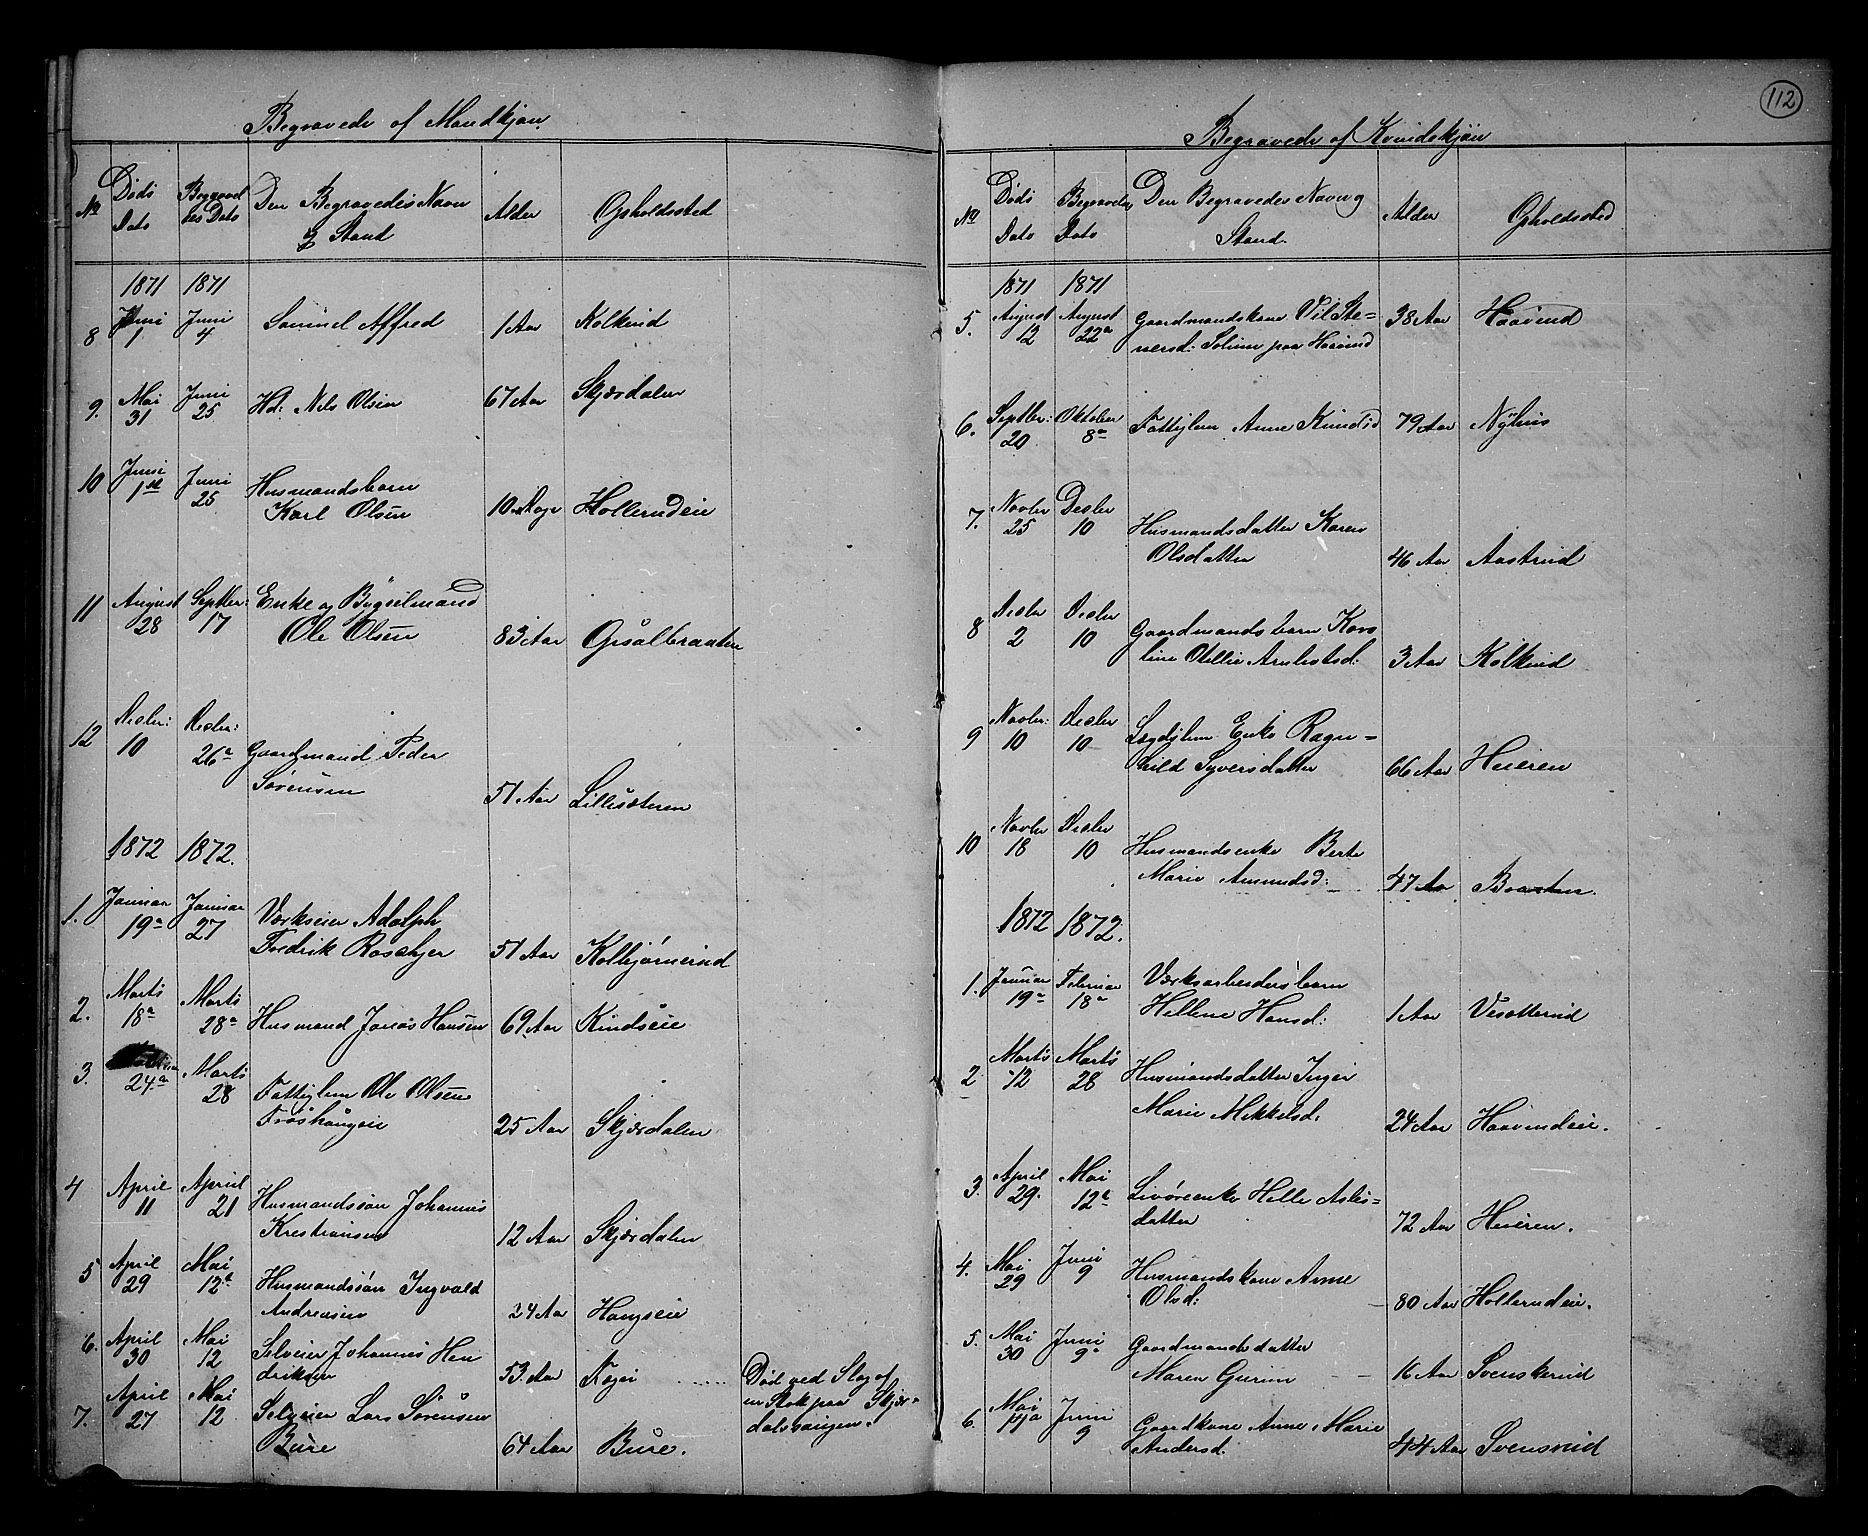 112
Begravede af Mandkjøn.
No
Døds Dato
Begravelses Dato
Den Begravedes Navn
og Stand
Alder
Opholdssted
1871 1871
8 Juni 1 Juni 4 Samuel Alfred 1 Aar Kolkind
9. Mai 31 Juni 25 Hd: Nils Olsen 67 Aar Skjærdalen
10 Juni 1ste Juni 25 Husmandsbarn
Karl Olsen 10 Dage Hollerudeie
11 August 28 Septbr: 17 Enke og Bøgselmand
Ole Olsen 83 Aar Grsalbraaten
12 Decbr: 10 Decbr: 26a Gaardmand Peder
Sørensen 51 Aar Lillesæteren
1872 1872.
1. Januar 19a Januar 27 Værkseier Adolph
Fredrik Roschjer 51 Aar Kolbjørnerud
2. Marts 18a Marts 28a Husmand Jonas Hansen 69 Aar Rudseie
3. 24.a Marts 28 Fattiglem Ole Olsen
Frøshaugeie 25 Aar Skjærdalen
4 April 11 April 21 Husmandssøn Johannes
Kristiansen 12 Aar Skjærdalen
5 April 29 Mai 12a Husmandssøn Ingvald
Andreasen 24 Aar Haugseie
6. April 30 Mai 12 Selveier Johannes Hen
driksen 53 Aar Røgei Død ved Slag af
en Stok paa Skjær=
dalssaugen.
7. April 27 Mai 12 Selveier Lars Sørensen
Bure 64 Aar Bure.
Begravede af Kvindekjøn
No
Døds Dato
Begravelses Dato
Den Begravedes Navn og
Stand.
Alder
Opholdssted
1871 1871
5. August 12 August 22a Gaardmandskone Pil Ste=
nersd: Solum paa Haavind 38 Aar Haavind
6. Septbr: 20 Oktober 8a Fattiglem Anne Knudsd 79 Aar Nyhus
7. Novbr 25 Decbr 10 Husmandsdatter Karen
Olsdatter 46 Aar Aastrud
8 Decbr 2 Decbr 10 Gaardmandsbarn Karo
line Otellie Arnhotsd: 3 Aar Kolkind
9 Novbr: 10 Decbr 10 Lægdslem Enke Ragn=
hild Syversdatter 66 Aar Heieren
10 Novbr 18 Decbr 10 Husmandsenke Berte
Marie Amundsd: 47 Aar Braaten.
1872 1872.
1. Januar 19a Februar 18a Værksarbeidersbarn
Hellene Hansd: 1 Aar Vesætterud
2 Marts 12 Marts 28 Husmandsdatter Inger
Marie Mikkelsd. 24 Aar Haavindeie.
3. April 29. Mai 12a Livøreenke Helle Asles=
datter 72 Aar Heieren.
4. Mai 29 Juni 9 Husmandskone Anne
Olsd: 80 Aar Hollerudeie.
5. Mai 30 Juni 9a Gaardmandsdatter
Maren Gurine 16 Aar Svenskerud
6. Mai Juni 9 Gaardkone Anne Marie
Andersd. 44 Aar Svensrud